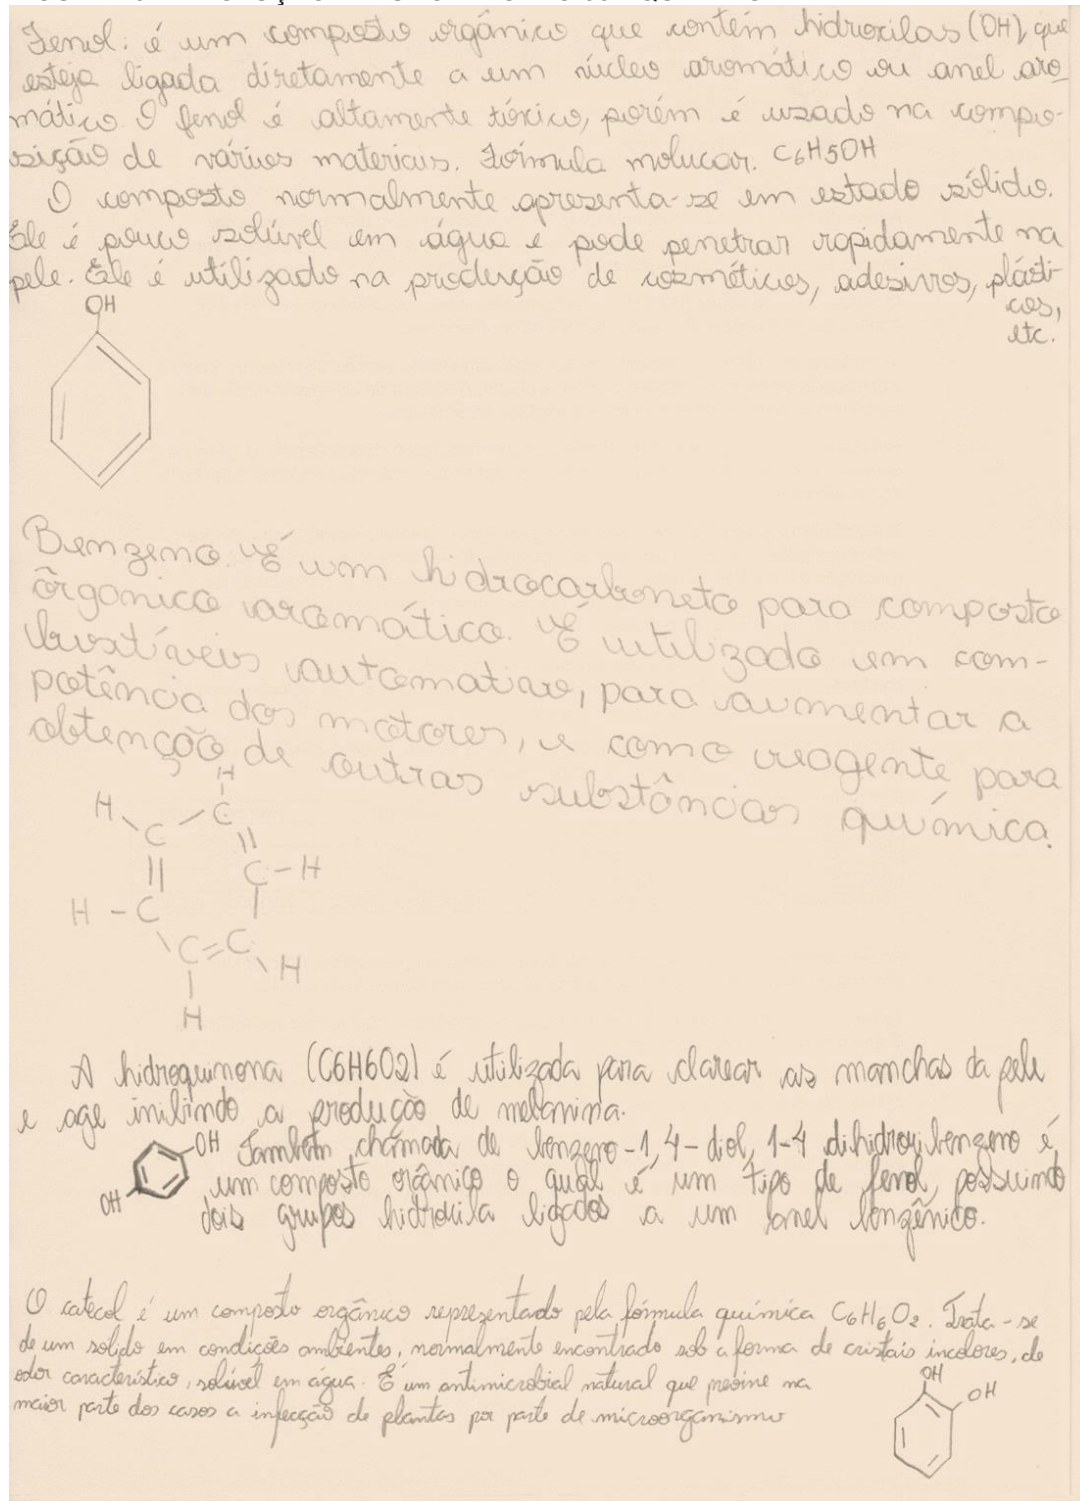 Fenol: é um composto orgânico que contém hidroxilas (OH), que
esteja ligada diretamente a um núcleo aromático ou anel aro-
mático. O fenol é altamente tóxico, porém é uzado na compo-
sição de vários materiais. Fórmula molucar. C6H5OH
O composto normalmente apresenta-se em estado sólido.
Ele é pouco solúvel em água e pode penetrar rapidamente na
pele. Ele é utilizado na produção de cosméticos, adesivos, plásti-
cos,
etc.
OH
Benzeno É um hidrocarboneto para composto
orgânico aromático. É utilizado em com-
bustíveis automativo, para aumentar a
potência dos motores, e como reagente para
obtenção de outras substâncias química.
H
H C C
C - H
H - C
C = C
H
H
A hidroquinona (C6H6O2) é utilizada para clarear as manchas da pele
e age inibindo a produção de melanina.
OH Também chamada de benzeno-1,4-diol, 1-4 dihidroxibenzeno é
OH um composto orgânico o qual é um tipo de fenol, possuindo
dois grupos hidroxila ligados a um anel benzênico.
O catecol é um composto orgânico representado pela fórmula química C6H6O2. Trata-se
de um solido em condições ambientes, normalmente encontrado sob a forma de cristais incolores, de
odor característico, solúvel em água. É um antimicrobial natural que previne na
maior parte dos casos a infecção de plantas por parte de microorganismo
OH
OH